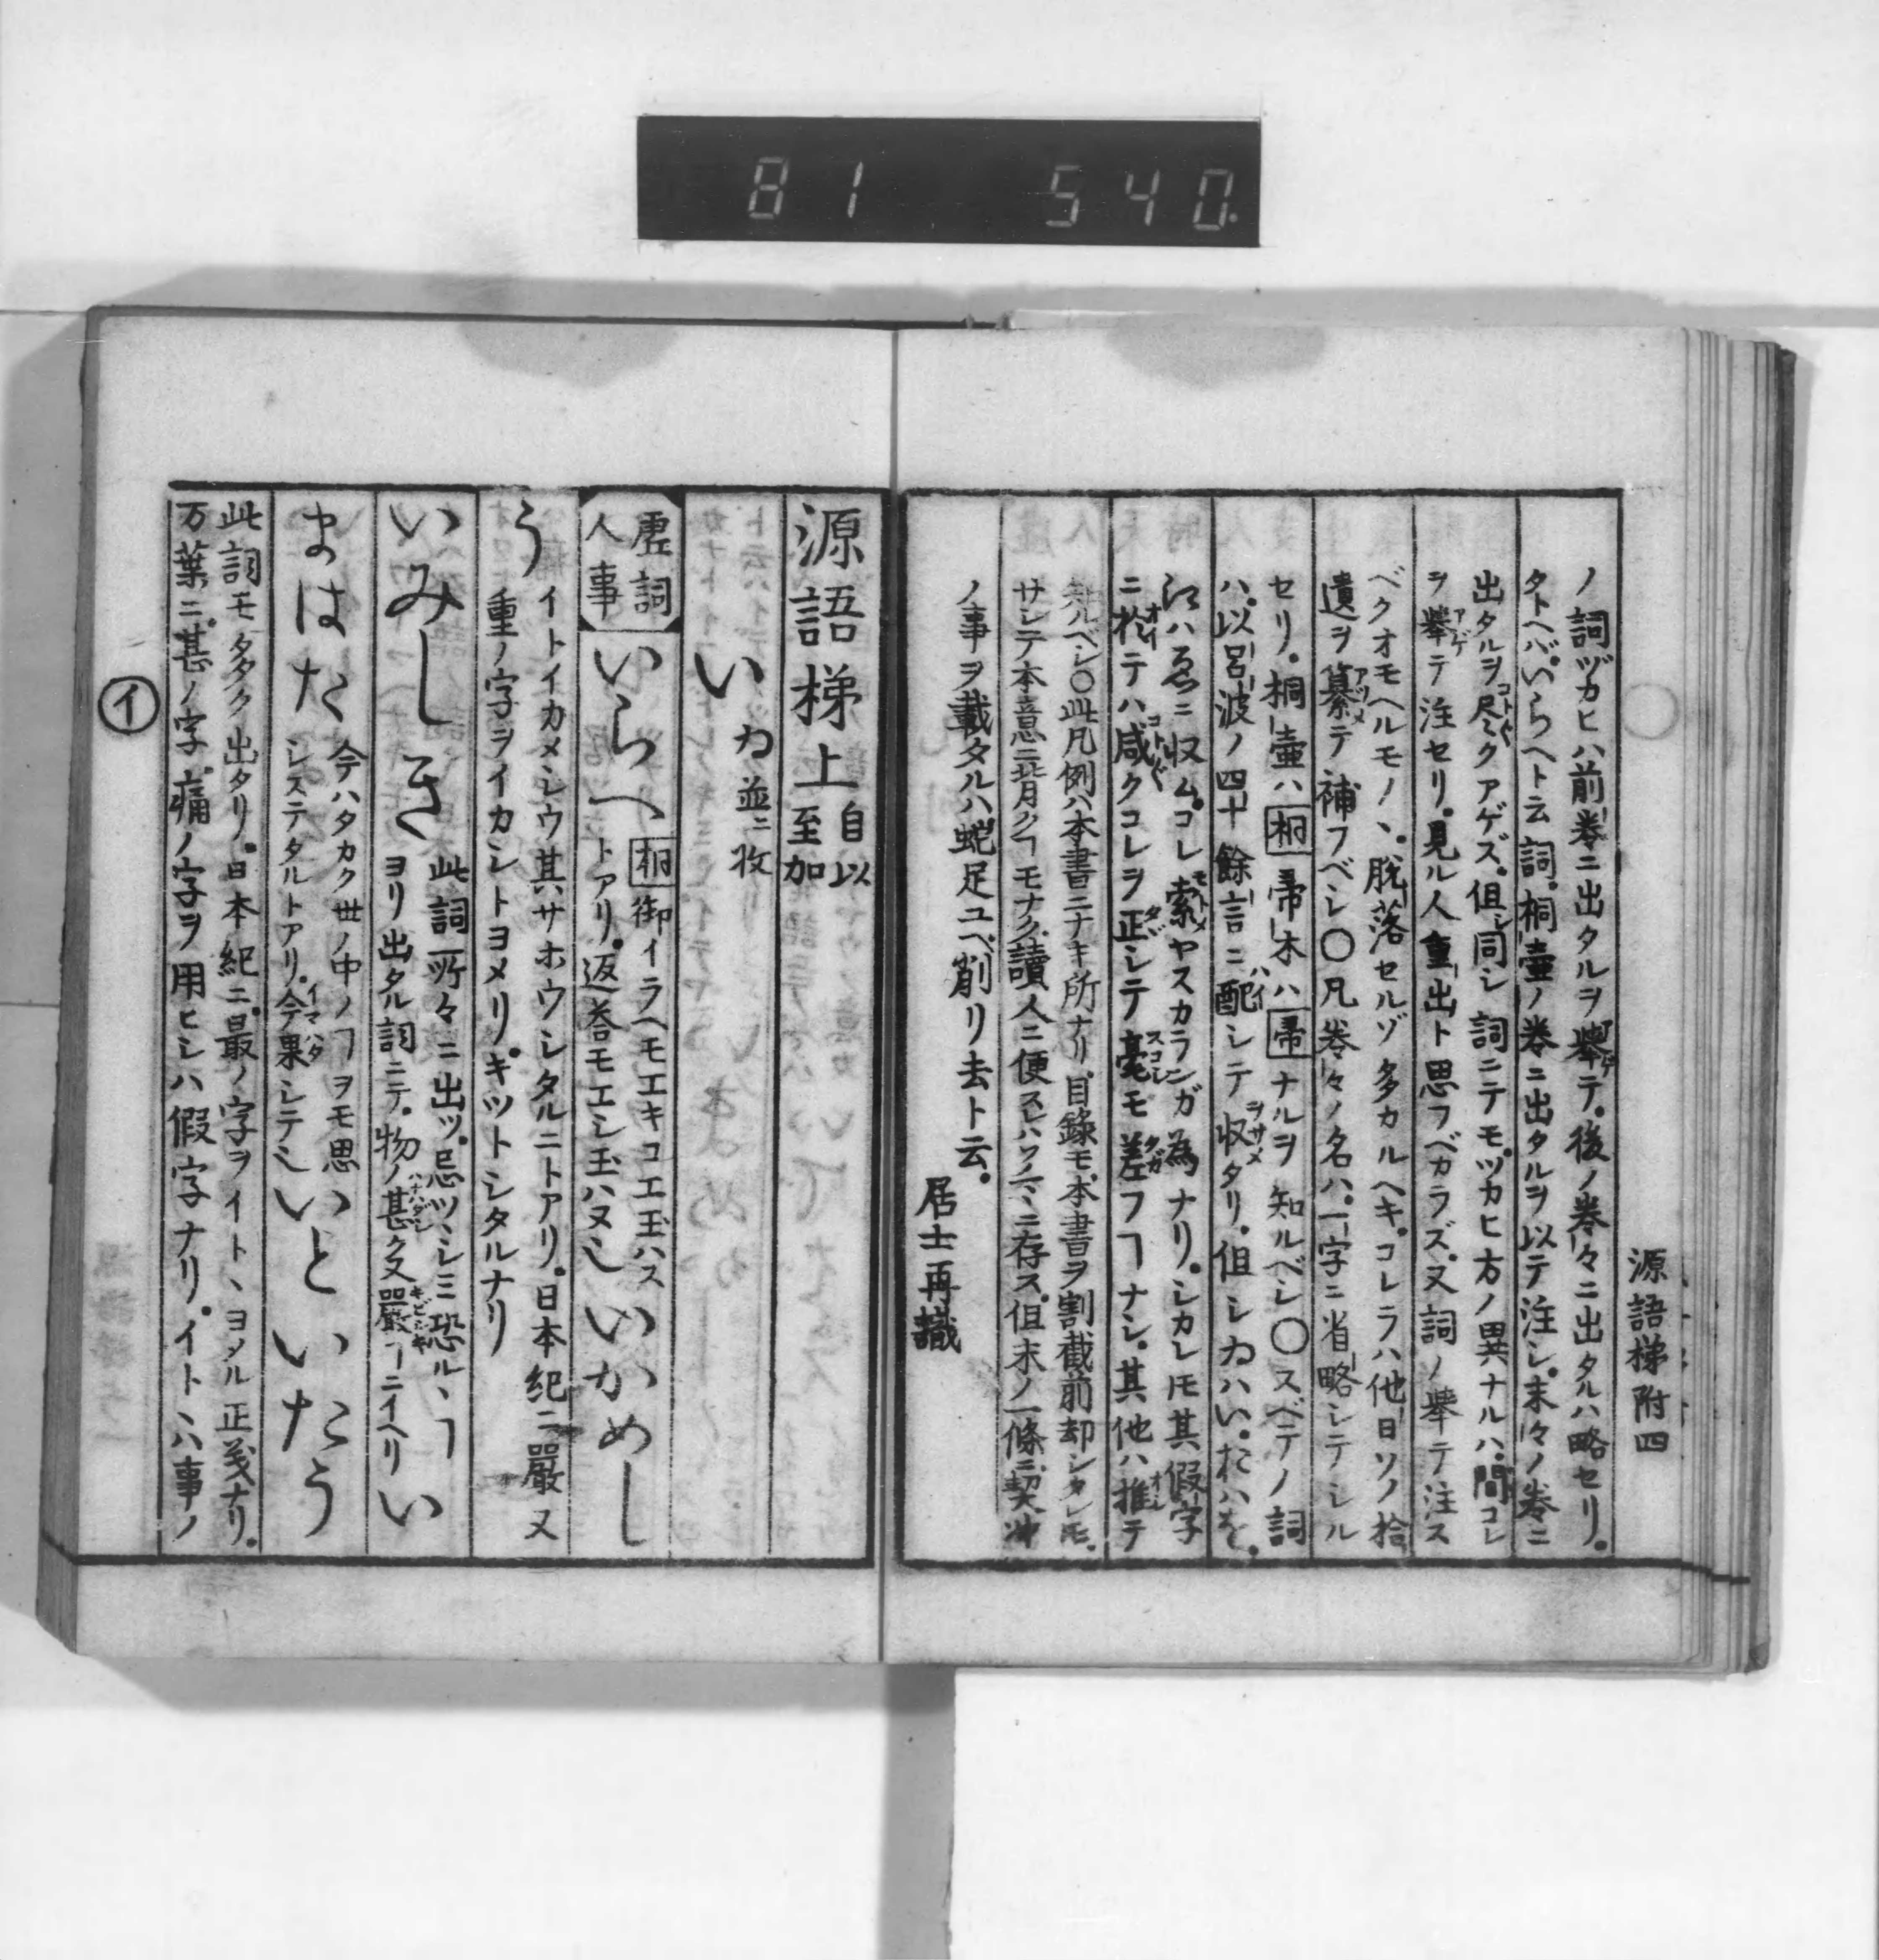 81 540
源語梯附四
ノ詞ヅカヒハ前巻ニ出タルヲ擧テ。後ノ巻々ニ出タルハ略セリ。
タトヘバ。いらへト云詞。桐壷ノ巻ニ出タルヲ以テ注シ。末々ノ巻ニ
出タルヲ尽クアゲズ。但シ同シ詞ニテモ。ツカヒ方ノ異ナルハ。間コレ
ヲ擧テ注セリ。見ル人重出ト思フベカラズ。又詞ノ擧テ注ス
ベクオモヘルモノヽ。脱落セルゾ多カルヘキ。コレラハ他日ソノ拾
遺ヲ纂テ補フベシ〇凡巻々ノ名ハ。一字ニ省略シテシル
セリ。桐壷ハ桐帚木ハ帚ナルヲ知ルベシ〇スベテノ詞
ハ。以呂波ノ四十餘言ニ配シテ収タリ。但しゐハい。おハを。
江ハゑニ収ム。コレ索ヤスカランガ為ナリ。シカレ𪜈其假字
ニ於テハ咸クコレヲ正シテ毫モ差フヿナシ。其他ハ推テ
知ルベシ〇此凡例ハ本書ニナキ所ナリ。目錄モ。本書ヲ割截前却シタレ𪜈。
サシテ本意ニ背クヿモナク。讀人ニ便スレハソノマヽニ存ス。但末ノ一條ニ。契冲
ノ事ヲ載タルハ。蛇足ユヘ削リ去ト云。
居士再識
源語梯上 自以至加
い ゐ並ニ收
虚詞人事
いらへ 桐御イラヘモエキコエ玉ハス
トアリ。返荅モエシ玉ハヌ也 いかめし
う イトイカメシウ其サホウシタルニトアリ。日本紀ニ嚴又
重ノ字ヲイカシトヨメリ。キツトシタルナリ
いみしき 此詞所々ニ出ツ。忌ツヽシミ恐ルヽヿ
ヨリ出タル詞ニテ。物ノ甚タ又嚴ヿニイヘリ い
まはた 今ハタカク世ノ中ノヿヲモ思
システタルトアリ。今果シテ也 いといたう
此詞モ多ク出タリ。日本紀ニ。最ノ字ヲイトヽヨメル正義ナリ。
万葉ニ。甚ノ字。痛ノ字ヲ用ヒシハ假字ナリ。イトヽハ事ノ
イ